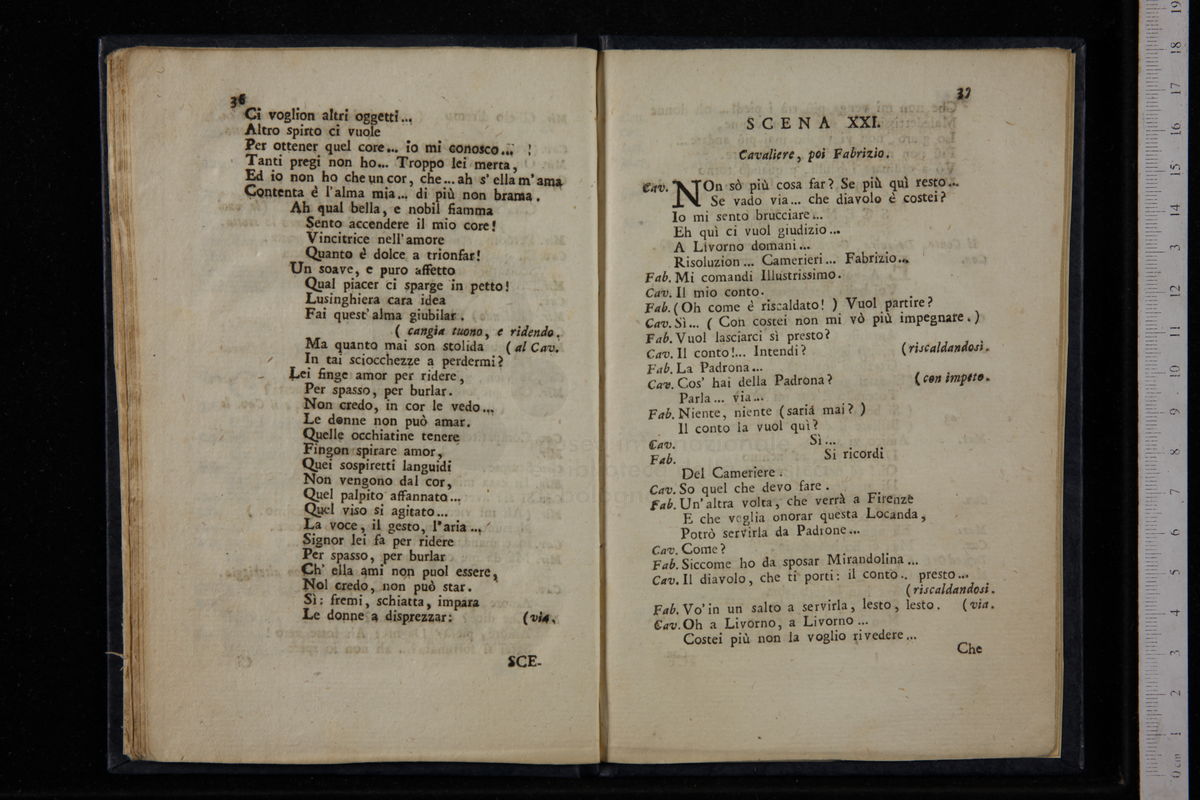 36
Ci voglion altri oggetti...
Altro spirto ci vuole
Per ottener quel core... io mi conosco... !
Tanti pregi non ho... Troppo lei merta,
Ed io non ho che un cor, che... ah s' ella m' ama
Contenta è l'alma mia... di più non brama.
Ah qual bella, e nobil fiamma
Sento accendere il mio core!
Vincitrice nell' amore
Quanto è dolce a trionfar!
Un soave, e puro affetto
Qual piacer ci sparge in petto!
Lusinghiera cara idea
Fai quest' alma giubilar.
( cangia tuono, e ridendo.
Ma quanto mai son stolida ( al Cav.
In tai sciocchezze a perdermi?
Lei finge amor per ridere,
Per spasso, per burlar.
Non credo, in cor le vedo...
Le donne non può amar.
Quelle occhiatine tenere
Fingon spirare amor,
Quei sospiretti languidi
Non vengono dal cor,
Quel palpito affannato...
Quel viso si agitato...
La voce, il gesto, l'aria...
Signor lei fa per ridere
Per spasso, per burlar
Ch' ella ami non puol essere,
Nol credo, non può star.
Sì: fremi, schiatta, impara
Le donne a disprezzar: (via.
SCE-
37
SCENA XXI.
Cavaliere, poi Fabrizio.
Cav. NOn sò più cosa far? Se più quì resto...
Se vado via... che diavolo è costei?
Io mi sento brucciare...
Eh quì ci vuol giudizio...
A Livorno domani...
Risoluzion... Camerieri... Fabrizio...
Fab. Mi comandi Illustrissimo.
Cav. Il mio conto.
Fab. ( Oh come è riscaldato! ) Vuol partire?
Cav. Sì... ( Con costei non mi vò più impegnare. )
Fab. Vuol lasciarci sì presto?
Cav. Il conto!... Intendi? (riscaldandosi.
Fab. La Padrona...
Cav. Cos' hai della Padrona? ( con impeto.
Parla... via...
Fab. Niente, niente ( sariá mai? )
Il conto la vuol quì?
Cav. Sì...
Fab. Si ricordi
Del Cameriere.
Cav. So quel che devo fare.
Fab. Un' altra volta, che verrà a Firenze
E che voglia onorar questa Locanda,
Potrò servirla da Padrone...
Cav. Come?
Fab. Siccome ho da sposar Mirandolina...
Cav. Il diavolo, che ti porti: il conto.. presto...
( riscaldandosi.
Fab. Vo' in un salto a servirla, lesto, lesto. (via.
Cav. Oh a Livorno, a Livorno...
Costei più non la voglio rivedere...
Che